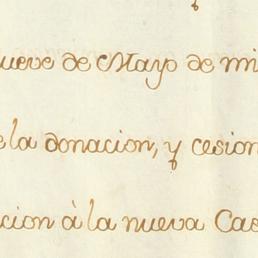 nueve de Mayo de mi
e la donacion, y cesion
cion à la nueva Cas